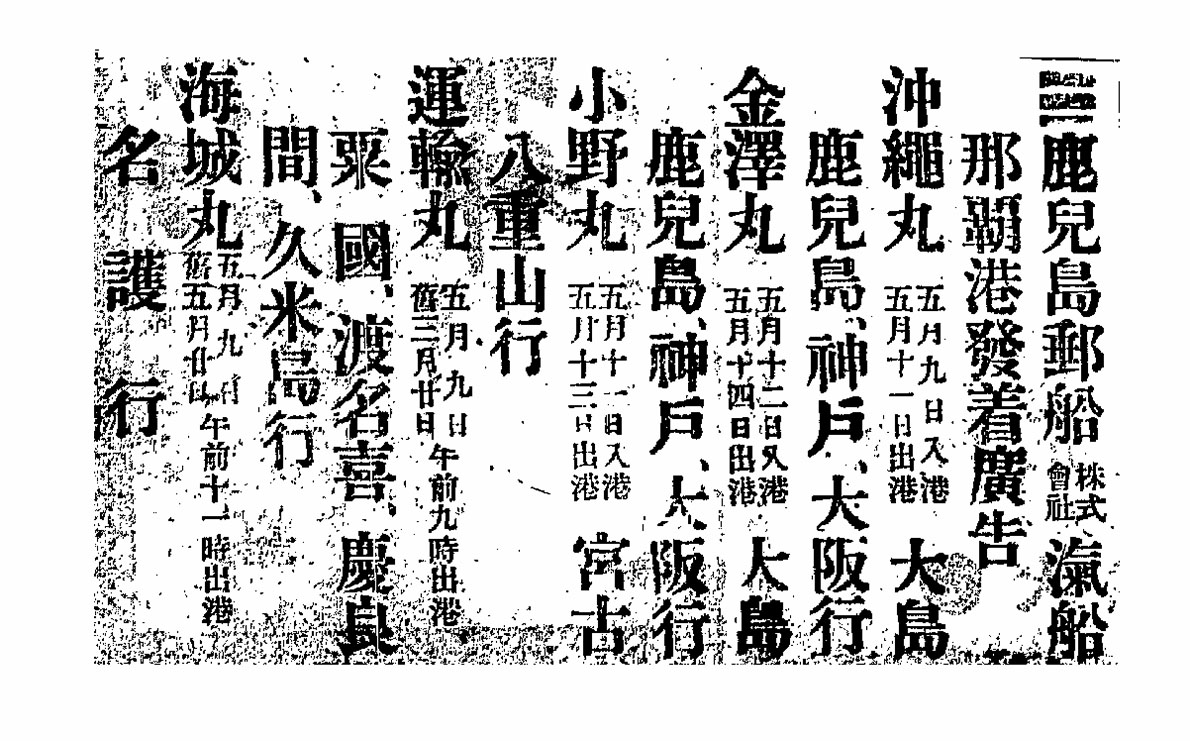 鹿兒島郵船株式會社滊船
那覇港發着廣告
沖繩丸 五月九日入港 五月十一日出港 大島
鹿兒島、神戶、大阪行
金澤丸 五月十二日入港 五月十四日出港 大島
鹿兒島、神戶、大阪行
小野丸 五月十一日入港 五月十三日出港 宮古
八重山行
運輸丸 五月九日 舊三月廿日 午前九時出港
粟國、渡名喜、慶良
間、久米島行
海城丸 五月九日 舊五月廿日 午前十一時出港
名護行